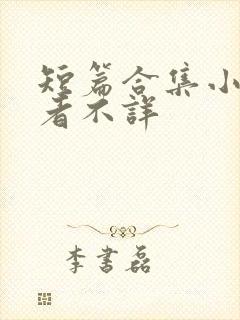 短篇合集小
者不詳
李書磊